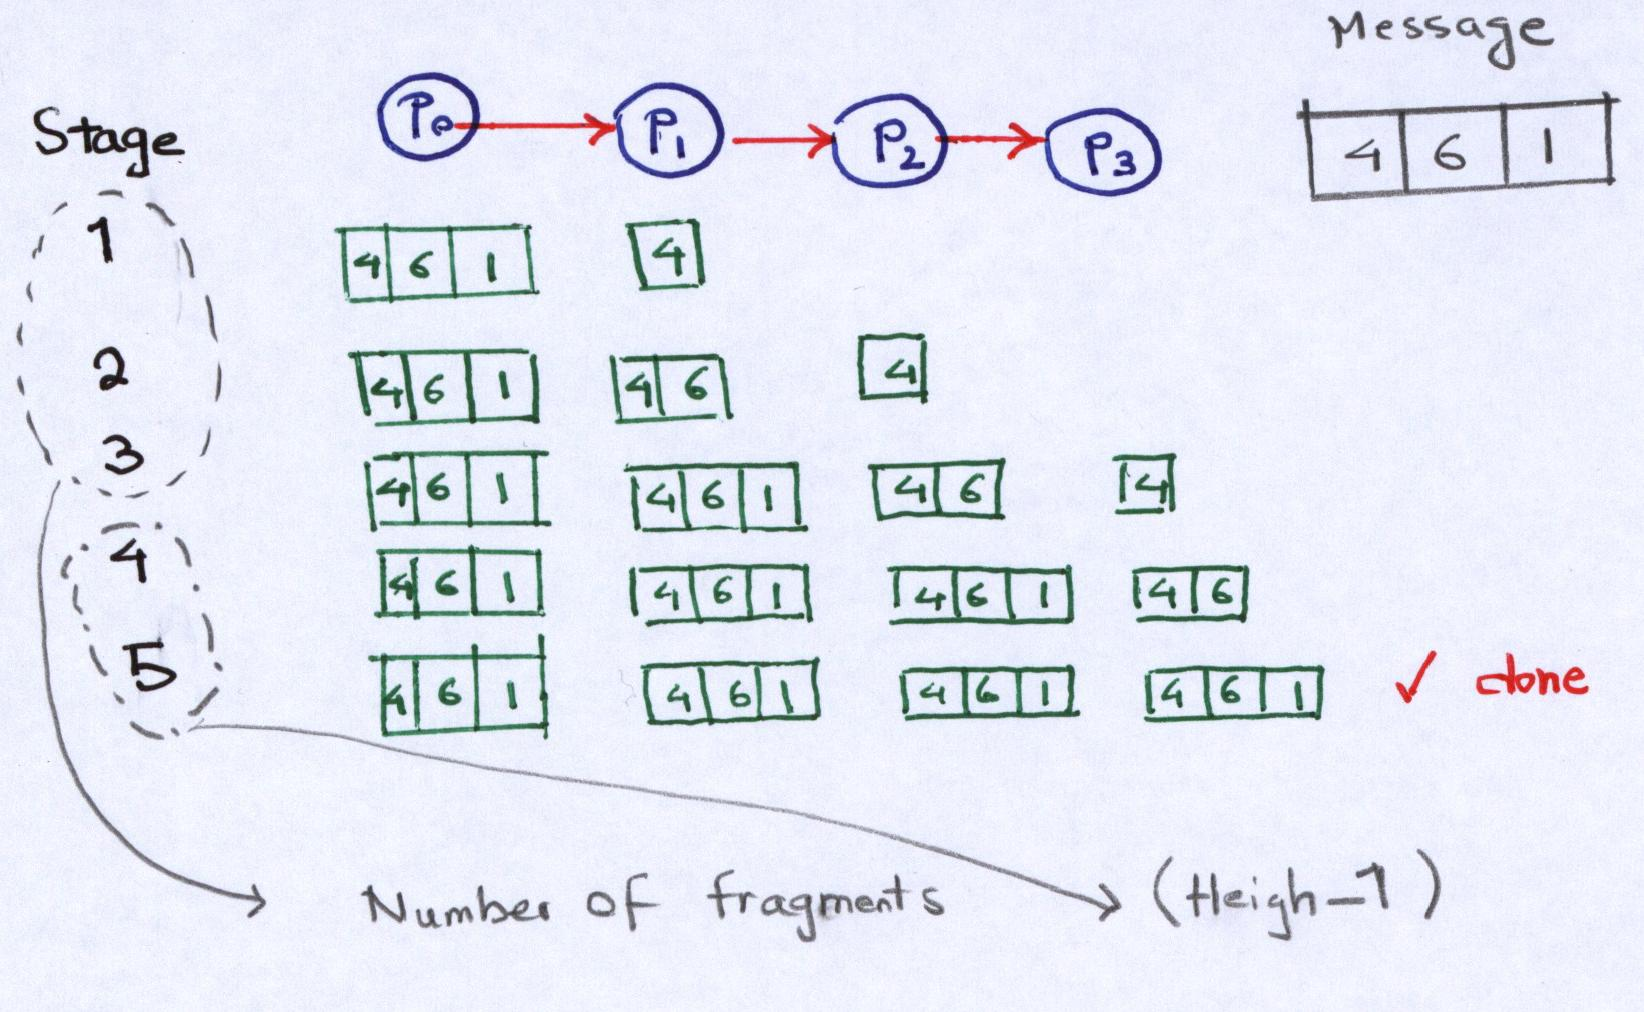 Message
Stage
P0 P1 P2 P3
4 6 1
1 4 6 1 4
2 4 6 1 4 6 4
3 4 6 1 4 6 1 4 6 4
4 4 6 1 4 6 1 4 6 1 4 6
5 4 6 1 4 6 1 4 6 1 4 6 1 ✓ done
Number of fragments (Heigh-1)